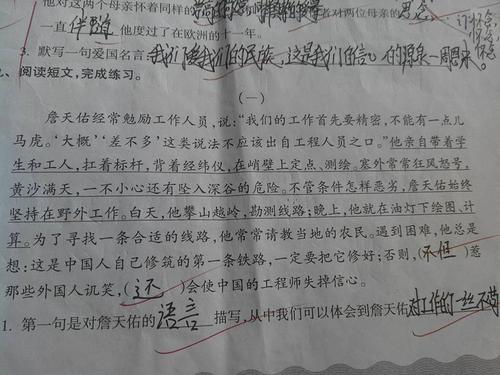 他对这两个母亲怀着同样的 者对两位母亲的思念
一直伴随他度过了在欧洲的十一年。
3. 默写一句爱国名言:我们爱我们的民族,这是我们自信心的源泉—周恩来。
、阅读短文,完成练习。
(一)
詹天佑经常勉励工作人员,说:“我们的工作首先要精密,不能有一点儿
马虎。‘大概’‘差不多’这类说法不应该出自工程人员之口。”他亲自带着学
生和工人,扛着标杆,背着经纬仪,在峭壁上定点、测绘。塞外常常狂风怒号,
黄沙满天,一不小心还有坠入深谷的危险。不管条件怎样恶劣,詹天佑始终
坚持在野外工作。白天,他攀山越岭,勘测线路;晚上,他就在油灯下绘图、计
算。为了寻找一条合适的线路,他常常请教当地的农民。遇到困难,他总是
想:这是中国人自己修筑的第一条铁路,一定要把它修好;否则,(不但)惹
那些外国人讥笑,(还)会使中国的工程师失掉信心。
1. 第一句是对詹天佑的语言描写,从中我们可以体会到詹天佑对工作的一丝不苟